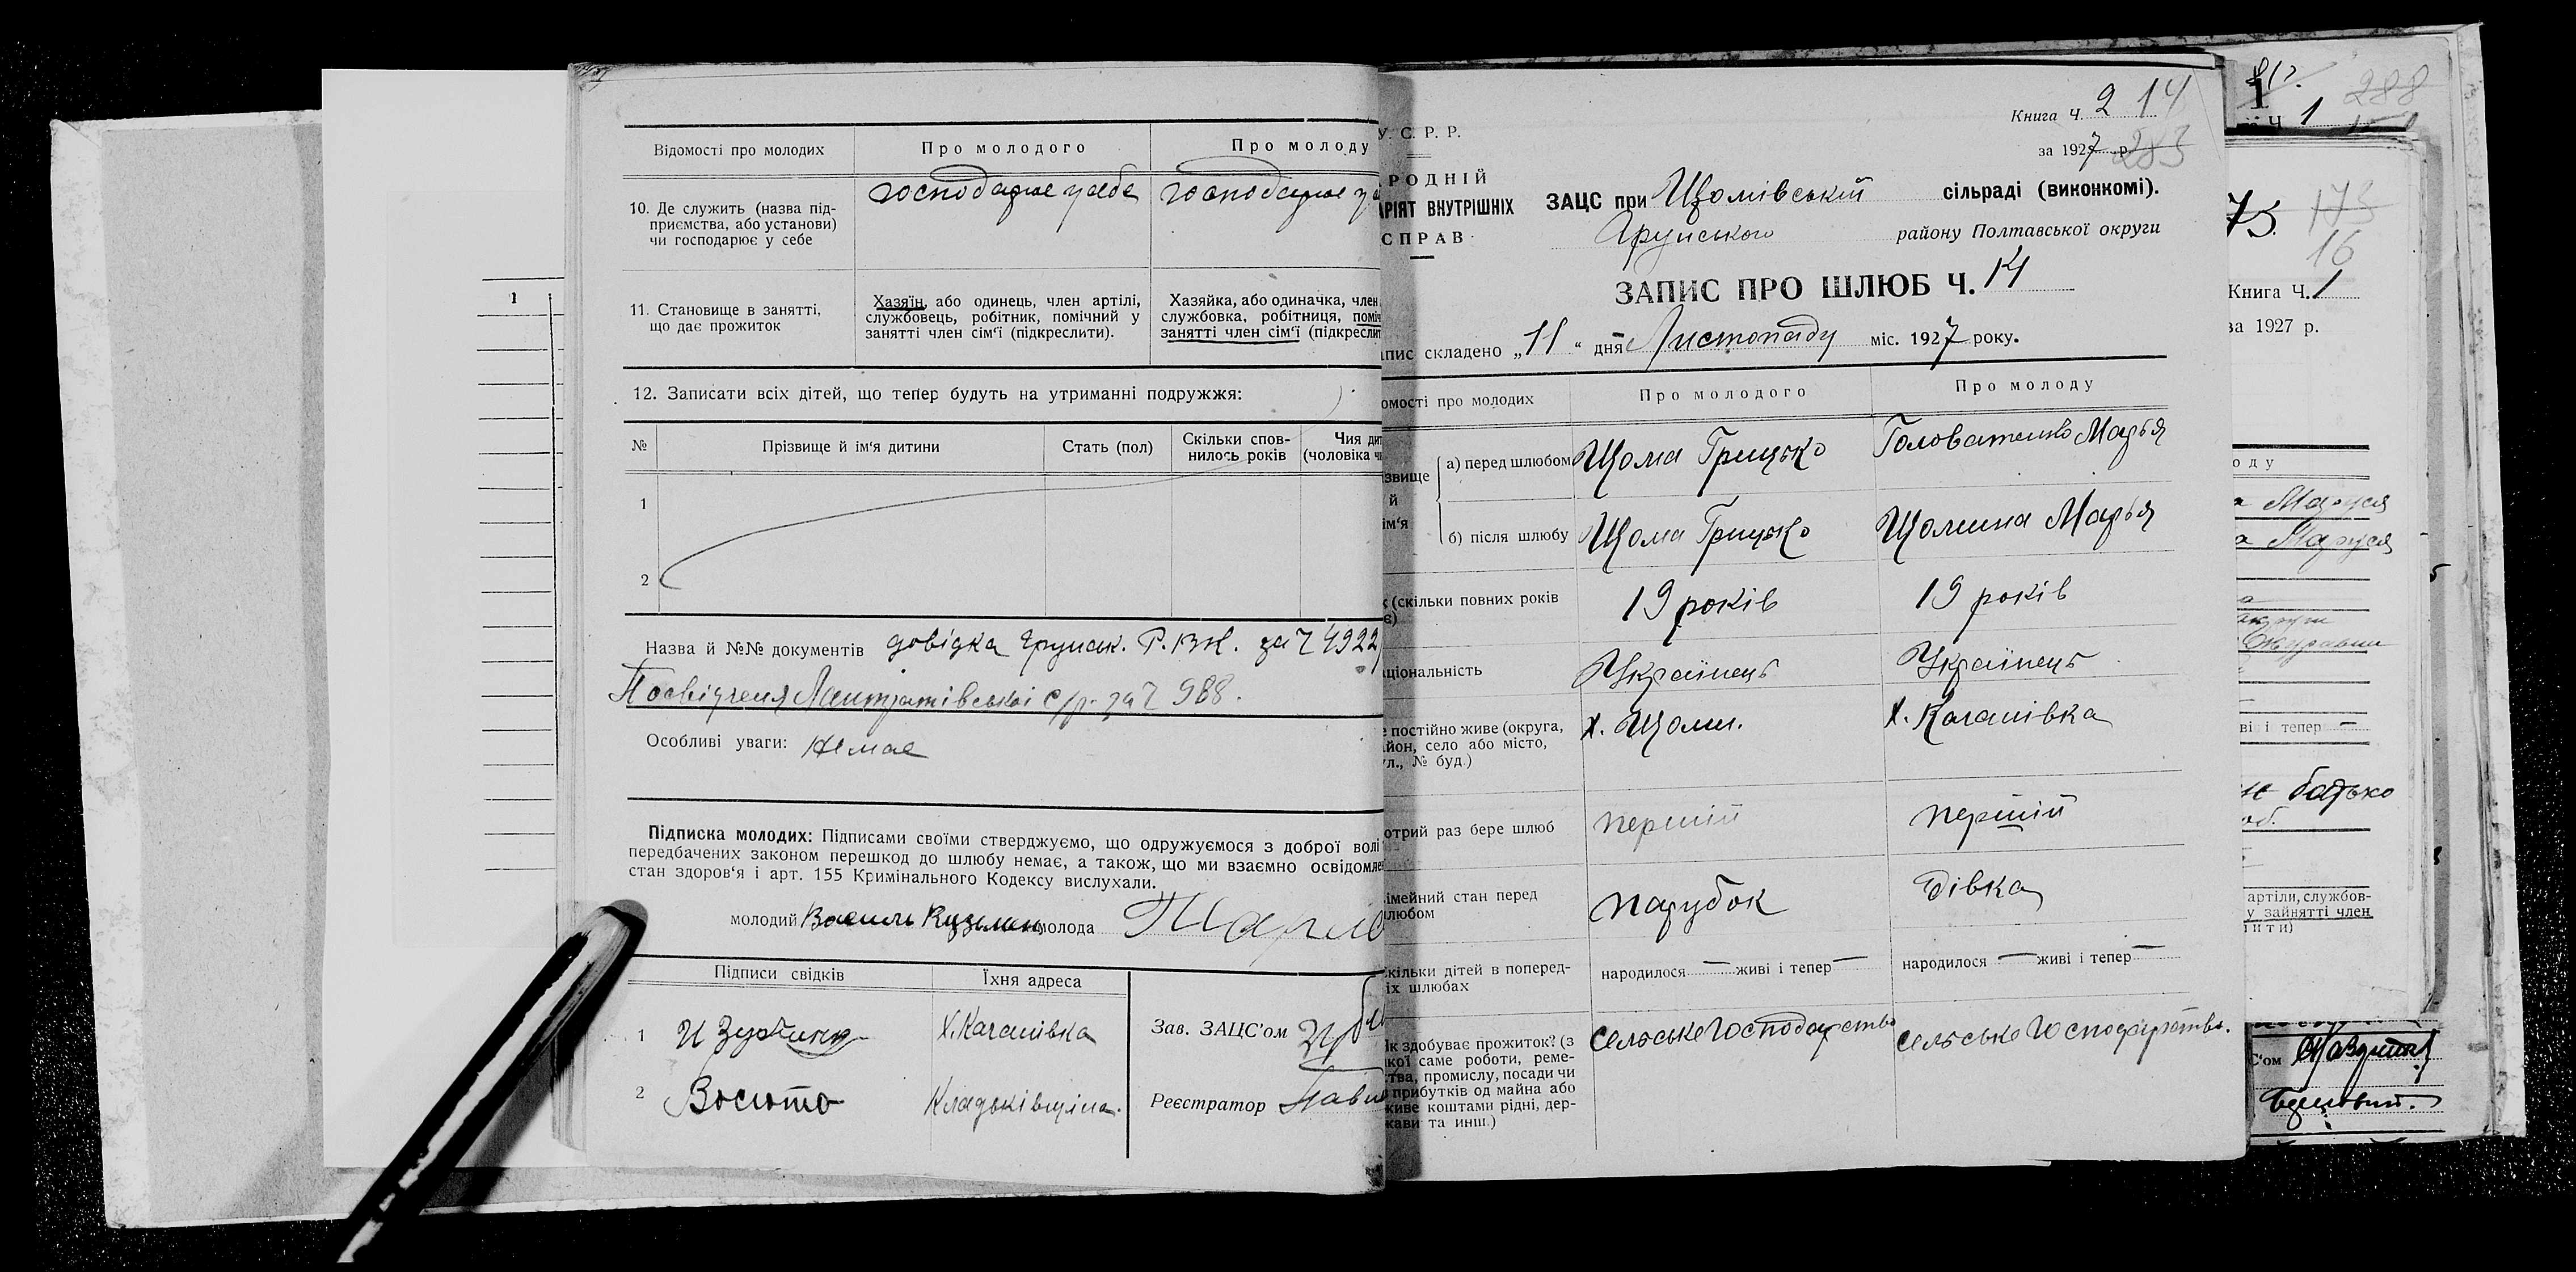 Відомості про молодих
Про молодого
Про молоду
10. Де служить (назва під-
приємства, або установи)
чи господарює у себе
господарює у себе
господарює у
11. Становище в занятті,
що дає прожиток
Хазяїн, або одинець, член артілі,
службовець, робітник, помічний у
занятті член сім'ї (підкреслити).
Хазяйка, або одиначка, член
службовка, робітниця, поміч
занятті член сім'ї (підкреслит
12. Записати всіх дітей, що тепер будуть на утриманні подружжя:
№
Прізвище й ім'я дитини
Стать (пол)
Скільки спов-
нилось років
Чия дит
(чоловіка ч
1
2
Назва й №№ документів довідка Грунськ. Р.В.К. за Ч 4922
Посвідченя Лантратівської с/р. за Ч 988.
Особливі уваги: Немає
Підписка молодих: Підписами своїми стверджуємо, що одружуємося з доброї волі
передбачених законом перешкод до шлюбу немає, а також, що ми взаємно освідомле
стан здоров'я і арт. 155 Кримінального Кодексу вислухали.
молодий Василь Кузьмен молода
Підписи свідків
Їхня адреса
1
Х. Качанівка
2
Восюто
Кладьківщина.
Зав. ЗАЦС'ом
Реєстратор
У. С. Р. Р.
РОДНІЙ
АРІЯТ ВНУТРІШНІХ
СПРАВ
Книга Ч. 2 14
за 1927 р. 283
ЗАЦС при Щомівській сільраді (виконкомі).
Грунського району Полтавської округи
ЗАПИС ПРО ШЛЮБ Ч. 14
апис складено „11" дня Листопаду міс. 1927 року.
омості про молодих
Про молодого
Про молоду
звище
й
ім'я
а) перед шлюбом
Щома Грицько
Головатенко Марья
б) після шлюбу
Щома Грицько
Щомина Марья
к (скільки повних років
є)
19 років
19 років
аціональність
Українець
Українець
е постійно живе (округа,
йон, село або місто,
ул., № буд.)
х. Щоми.
х. Качанівка
отрий раз бере шлюб
першій
першій
імейний стан перед
любом
парубок
дівка
кільки дітей в поперед-
іх шлюбах
народилося — живі і тепер —
народилося — живі і тепер —
Як здобуває прожиток? (з
якої саме роботи, реме-
ства, промислу, посади чи
прибутків од майна або
живе коштами рідні, дер-
жави та инш.)
Сельське Господарство
Сельське Господарство.
1
Ч 1
288
75
173
16
Книга Ч. 1
за 1927 р.
оду
а Маруся
а Маруся
ві і тепер —
батько
артіли, службов-
у зайнятті член
ити)
С'ом
1